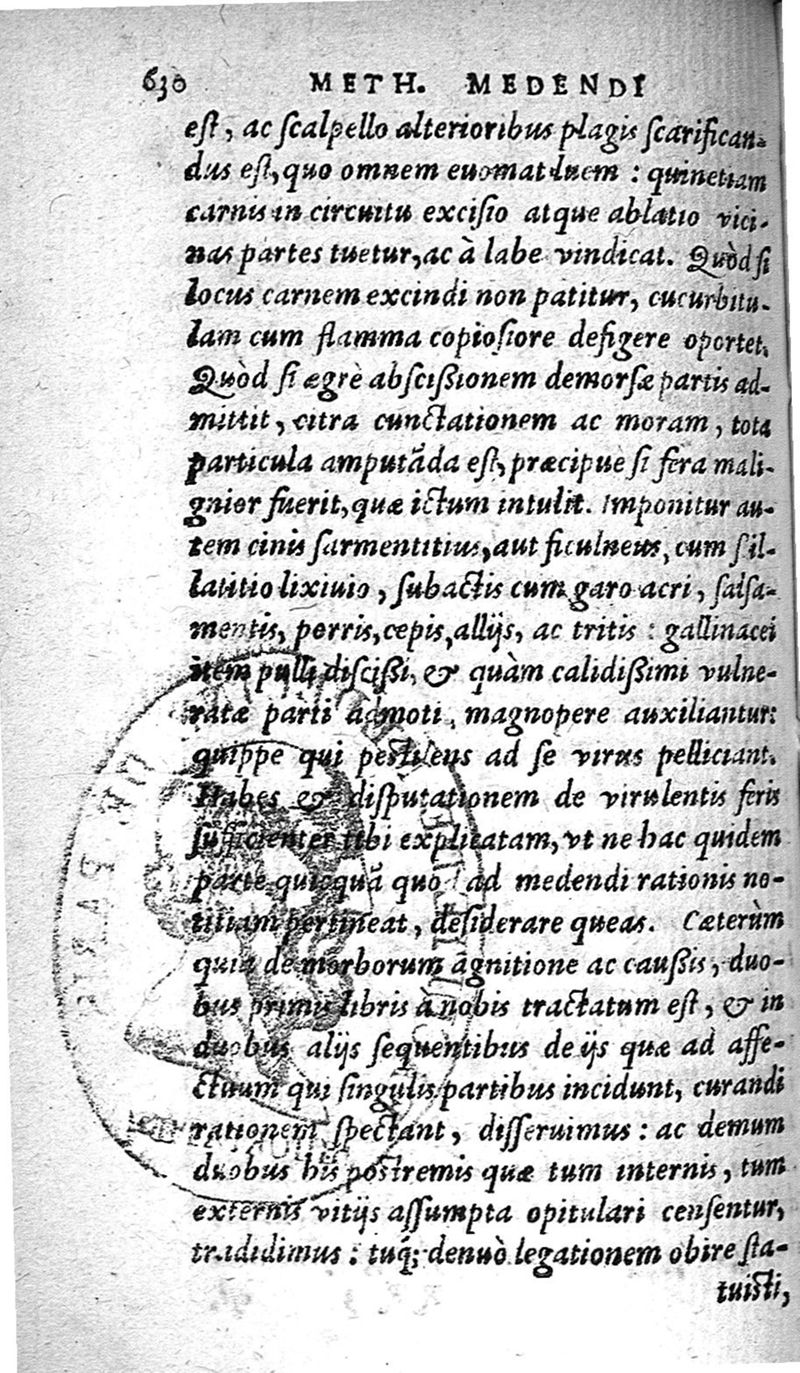 630 METH. MEDENDI
eſt, ac ſcalpello alterioribus plagis ſcarifican-
dus eſt, quo omnem euomat luem : quinetiam
carnis in circuitu exciſio atque ablatio vici-
nas partes tuetur, ac à labe vindicat. Quòd ſi
locus carnem excindi non patitur, cucurbitu-
lam cum flamma copioſiore defigere oportet.
Quòd ſi ægrè abſciſsionem demorſæ partis ad-
mittit, citra cunctationem ac moram, tota
particula amputāda eſt, præcipue ſi fera mali-
gnior fuerit, quæ ictum intulit. Imponitur au-
tem cinis ſarmentitius, aut ficulneus, cum ſtil-
latitio lixiuio, ſubactis cum garo acri, ſalſa-
mentis, porris, cepis, allijs, ac tritis : gallinacei
item pulli diſciſsi, & quàm calidiſsimi vulne-
ratæ parti admoti, magnopere auxiliantur:
quippe qui peſtilens ad ſe virus pelliciant.
Habes & diſputationem de virulentis feris
ſufficienter tibi explicatam, vt ne hac quidem
parte quicquā quod ad medendi rationis no-
titiam pertineat, deſiderare queas. Cæterùm
quia de morborum agnitione ac cauſsis, duo-
bus primis libris à nobis tractatum eſt, & in
duobus alijs ſequentibus de ijs quæ ad affe-
ctuum qui ſingulis partibus incidunt, curandi
rationem ſpectant, diſſeruimus : ac demum
duobus hiſ poſtremis quæ tum internis, tum
externis vitijs aſſumpta opitulari cenſentur,
tradidimus : tuq́; denuò legationem obire ſta-
tuiſti,